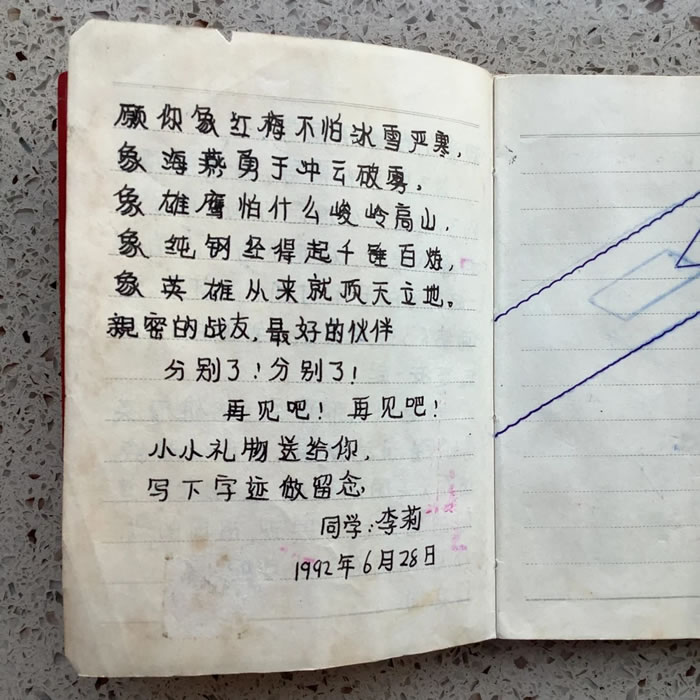 愿你象红梅不怕冰雪严寒,
象海燕勇于冲云破雾,
象雄鹰怕什么峻岭高山,
象纯钢经得起千锤百炼,
象英雄从来就顶天立地。
親密的战友,最好的伙伴
分别了!分别了!
再见吧!再见吧!
小小礼物送给你,
写下字迹做留念,
同学:李莉
1992年6月28日